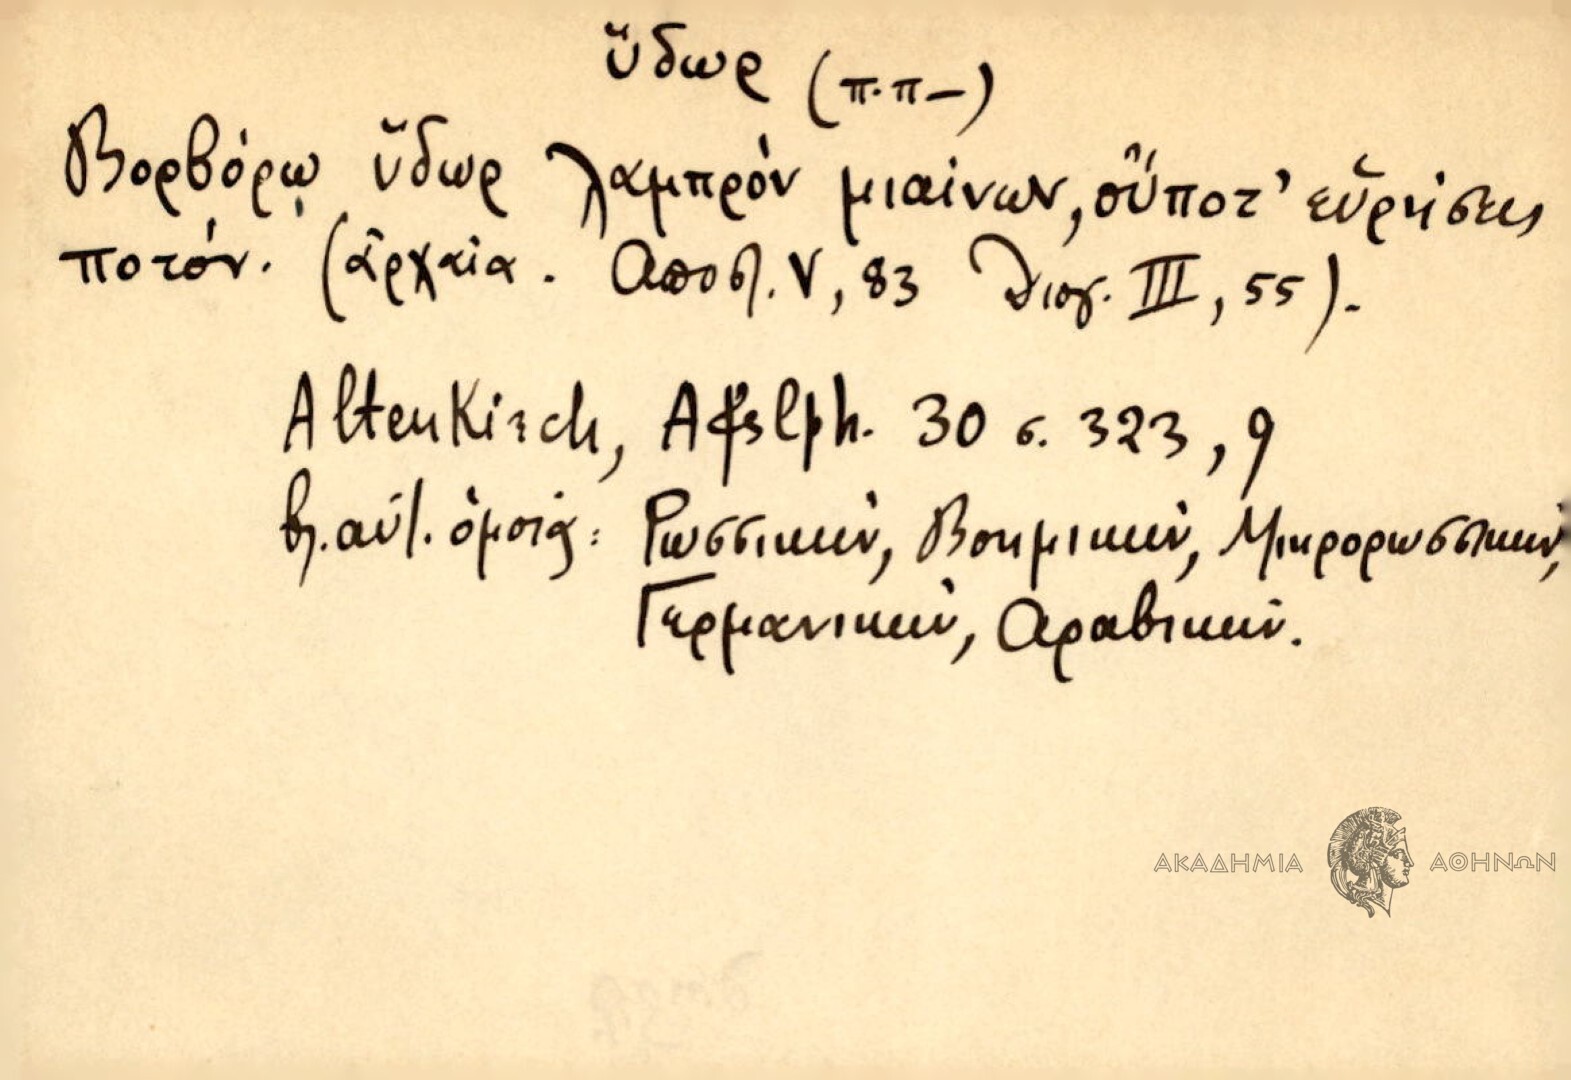 ὕδωρ (π.π–)
Βορβόρῳ ὕδωρ λαμπρὸν μιαίνων, οὔποτ' εὑρήσεις
ποτόν. (ἀρχαία. Αποστ. V, 83 Διογ. III, 55).
Altenkirch, Afslph. 30 σ. 323, 9
βλ. αὐτ. ὁμοίᾳ: Ρωσσικὴν, Βοημικὴν, Μικρορωσσικὴν,
Γερμανικὴν, Αραβικὴν.
ΑΚΑΔΗΜΙΑ ΑΘΗΝΩΝ